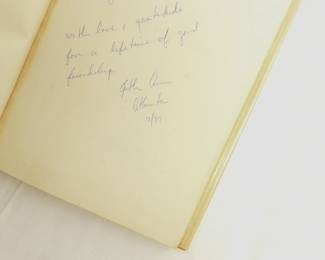 with love & gratitude
for a lifetime of good
friendship
Atlanta